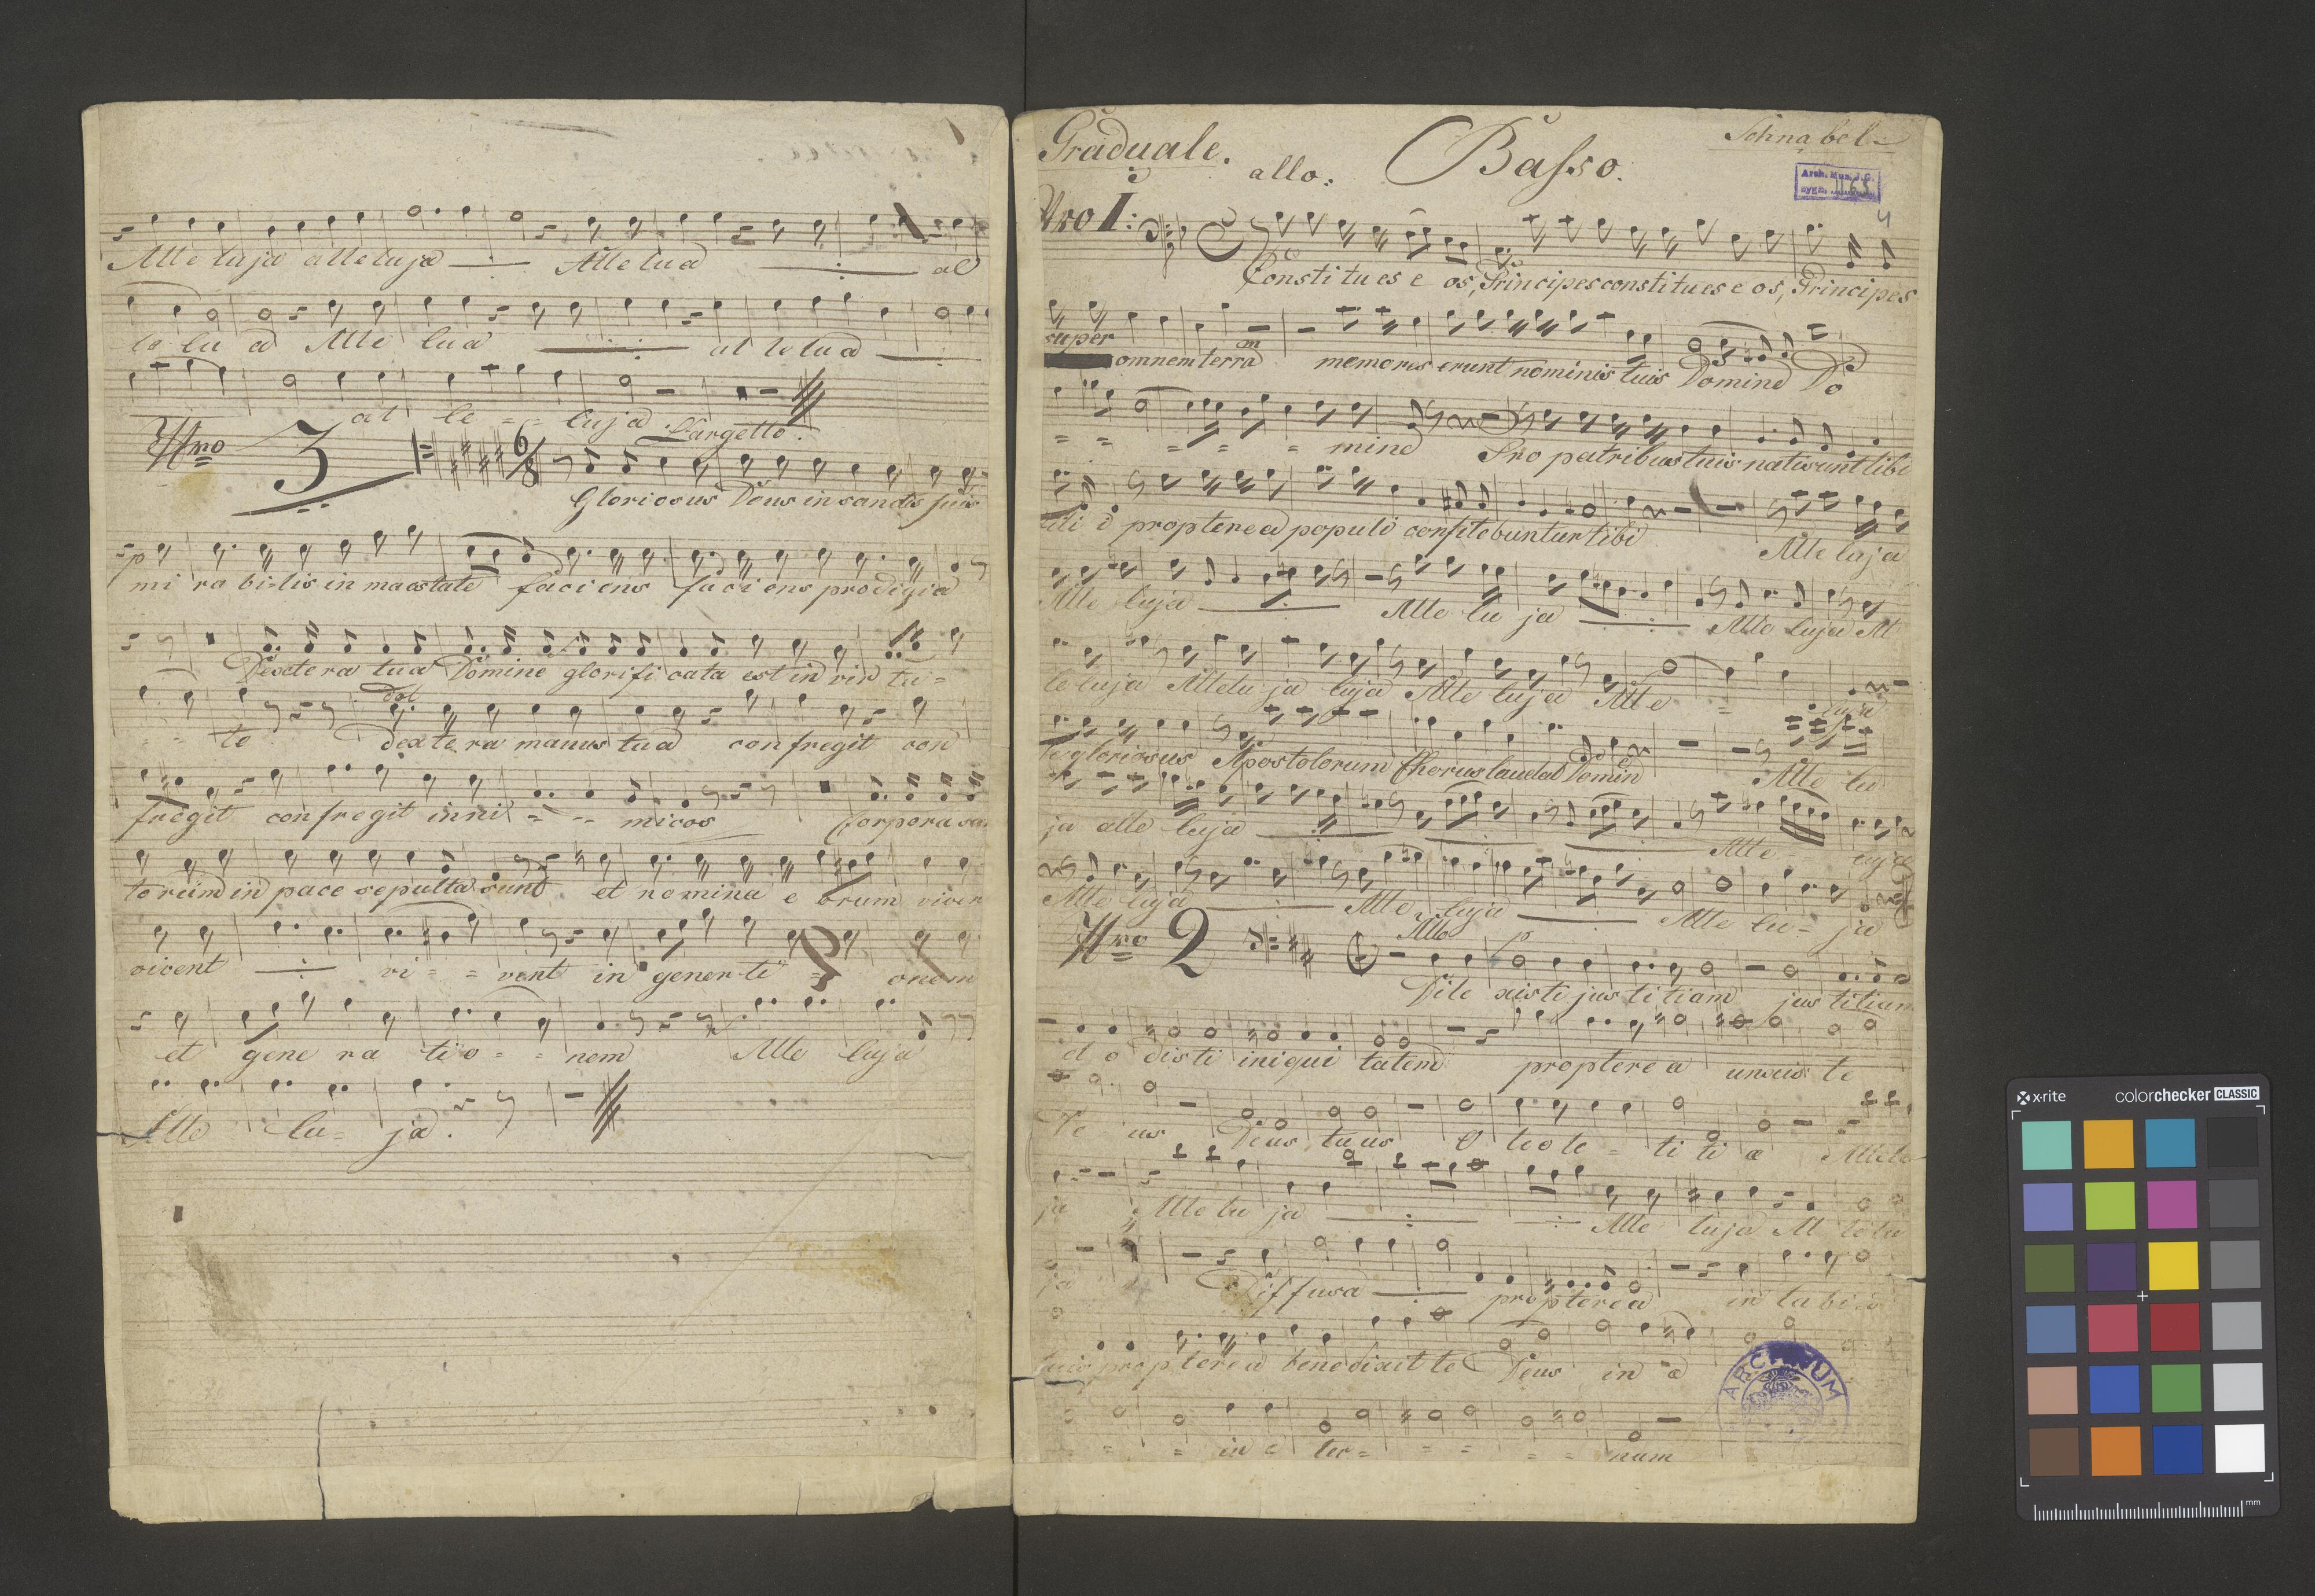 Alleluja alleluja Allelua al
le lu a Alle lua al lelua
al le - luja
Nro 3 Largetto.
6/8
Gloriosus Deus in sanctis suis
p
mi ra bi-lis in maestate faciens faciens prodigia
Dextera tua Domine glorifi cata est in vir tu =
dol
= = te dextera manus tua confregit con
fregit confregit inni = = micos Corpora sanc
torum in pace sepulta sunt et nomina e orum viven
vivent vi = = vent in generti = onem
et gene ra tio = = nem Alle luja
Alle lu = ja.
Graduale. allo: Basso. Schnabel
Arch. Mus. J. G.
sygn. 1163
4
Nro I:
Constitues e os, Principes constitues e os, Principes
super
omnem terram memores erunt nominis tuis Domine Do
= = = = = mine Pro patribus tuis nati sunt tibi
filii propterea populi confitebuntur tibi Alleluja
Alle luja Alle lu ja Alle luja Al
leluja Allelu ja luja Alle luja Alle = luja
Te gloriosus Apostolorum Chorus laudat Domin Alle lu
ja alle luja Alle luja
Alle luja Alle luja Alle lu = ja
Nro 2 Allo p
Dile xisti justitiam justitiam
et o disti iniqui tatem propterea unxis te
De us Deus tuus O leo le = ti ti æ Allelu
ja Allelu ja Alle luja Al lelu
ja Diffusa propterea in labiis
tuis propterea benedixit te Deus in æ
= = = in æ ter = = = = = num
ARCHIVUM
x-rite colorchecker CLASSIC
mm